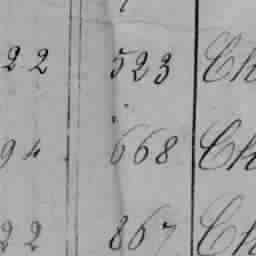 22 523 Ch
94 668 Ch
22 867 Ch